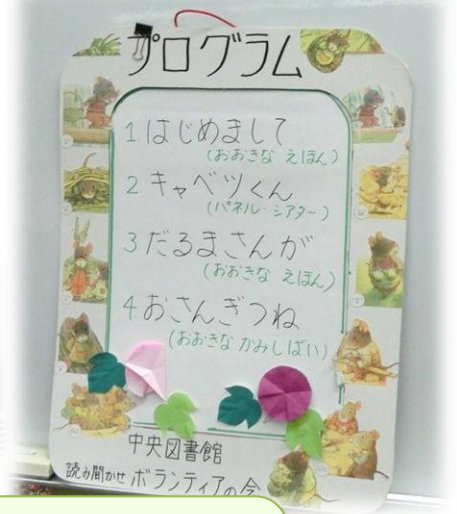 プログラム
1 はじめまして
(おおきな えほん)
2. キャベツくん
(パネル・シアター)
3 だるまさんが
(おおきな えほん)
4 おさんぎつね
(おおきな かみしばい)
中央図書館
読み聞かせ ボランティアの会